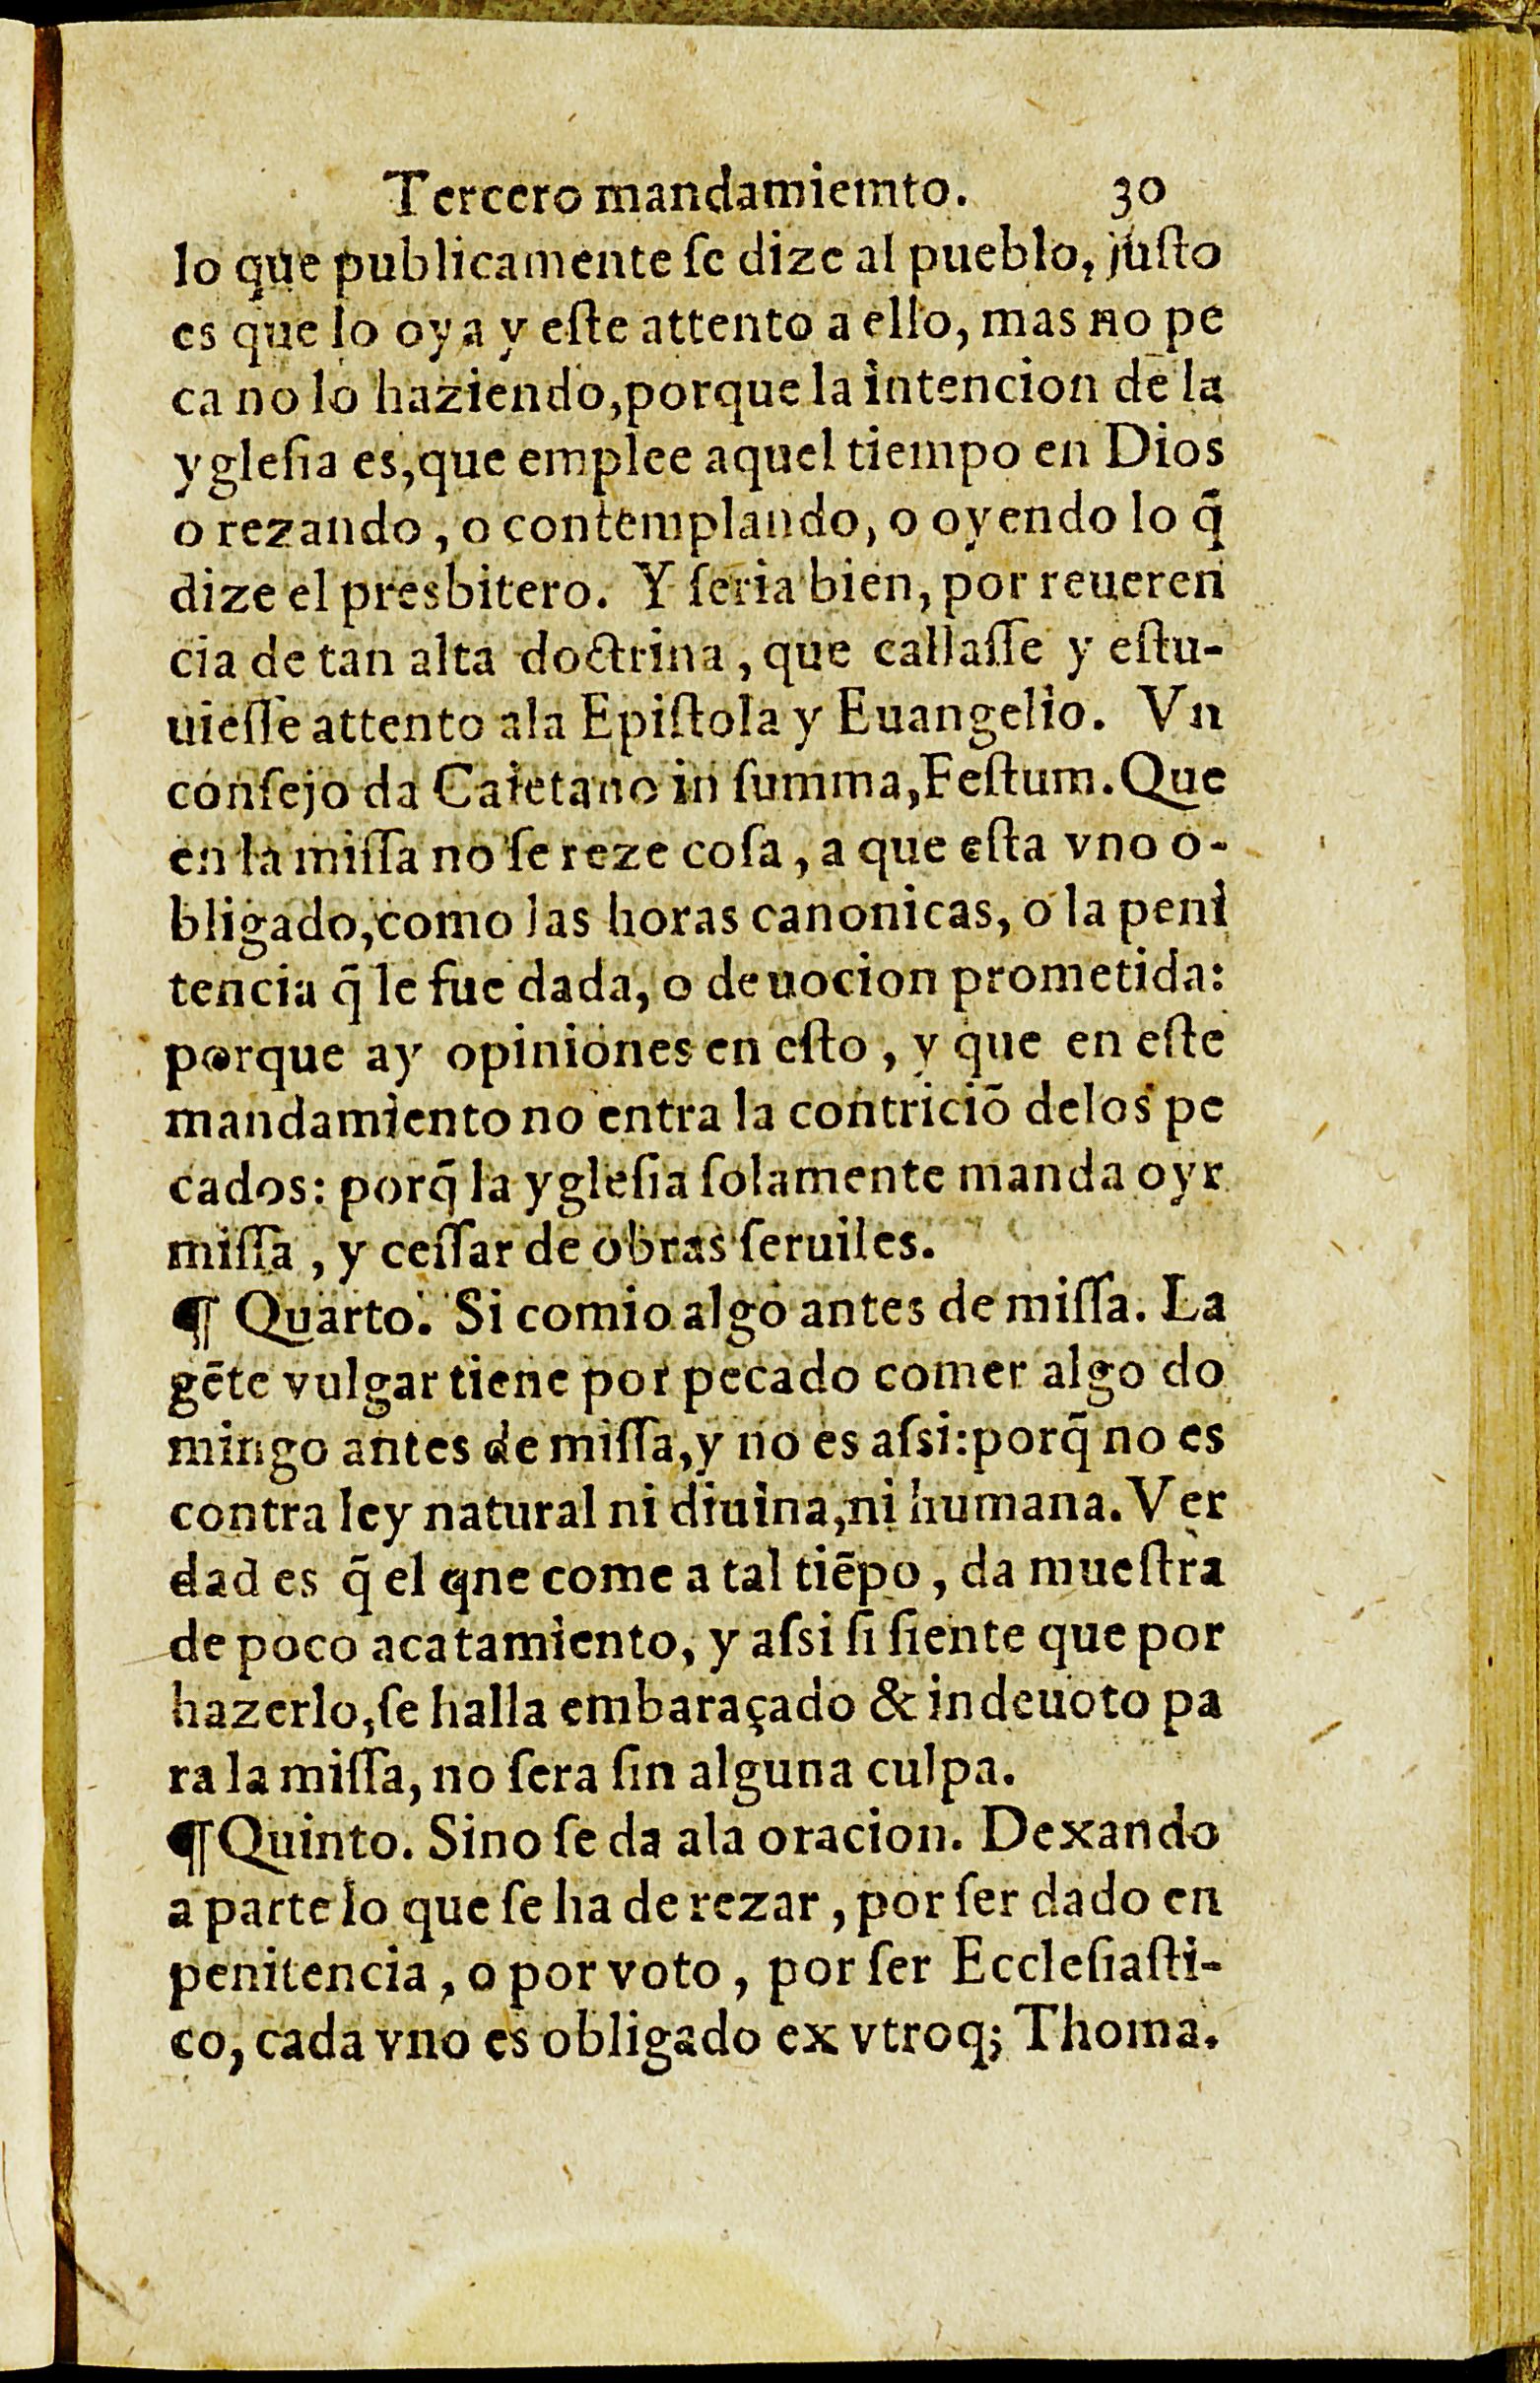 Tercero mandamiemto. 30
lo que publicamente ſe dize al pueblo, juſto
es que lo oya y eſte attento a ello, mas no pe
ca no lo haziendo,porque la intencion de la
ygleſia es,que emplee aquel tiempo en Dios
o rezando, o contemplando, o oyendo lo q̃
dize el presbitero. Y ſeria bien, por reueren
cia de tan alta doctrina, que callaſſe y eſtu-
uieſſe attento ala Epiſtola y Euangelio. Vn
conſejo da Caietano in ſumma,Feſtum. Que
en la miſſa no ſe reze coſa, a que eſta vno o-
bligado,como las horas canonicas, o la peni
tencia q̃ le fue dada, o deuocion prometida:
porque ay opiniones en eſto, y que en eſte
mandamiento no entra la contriciõ delos pe
cados: porq̃ la ygleſia ſolamente manda oyr
miſſa, y ceſſar de obras ſeruiles.
¶ Quarto. Si comio algo antes de miſſa. La
gẽte vulgar tiene por pecado comer algo do
mingo antes de miſſa,y no es aſsi:porq̃ no es
contra ley natural ni diuina,ni humana. Ver
dad es q̃ el qne come a tal tiẽpo, da mueſtra
de poco acatamiento, y aſsi ſi ſiente que por
hazerlo,ſe halla embaraçado & indeuoto pa
ra la miſſa, no ſera ſin alguna culpa.
¶ Quinto. Sino ſe da ala oracion. Dexando
a parte lo que ſe ha de rezar, por ſer dado en
penitencia, o por voto, por ſer Eccleſiaſti-
co, cada vno es obligado ex vtroq; Thoma.